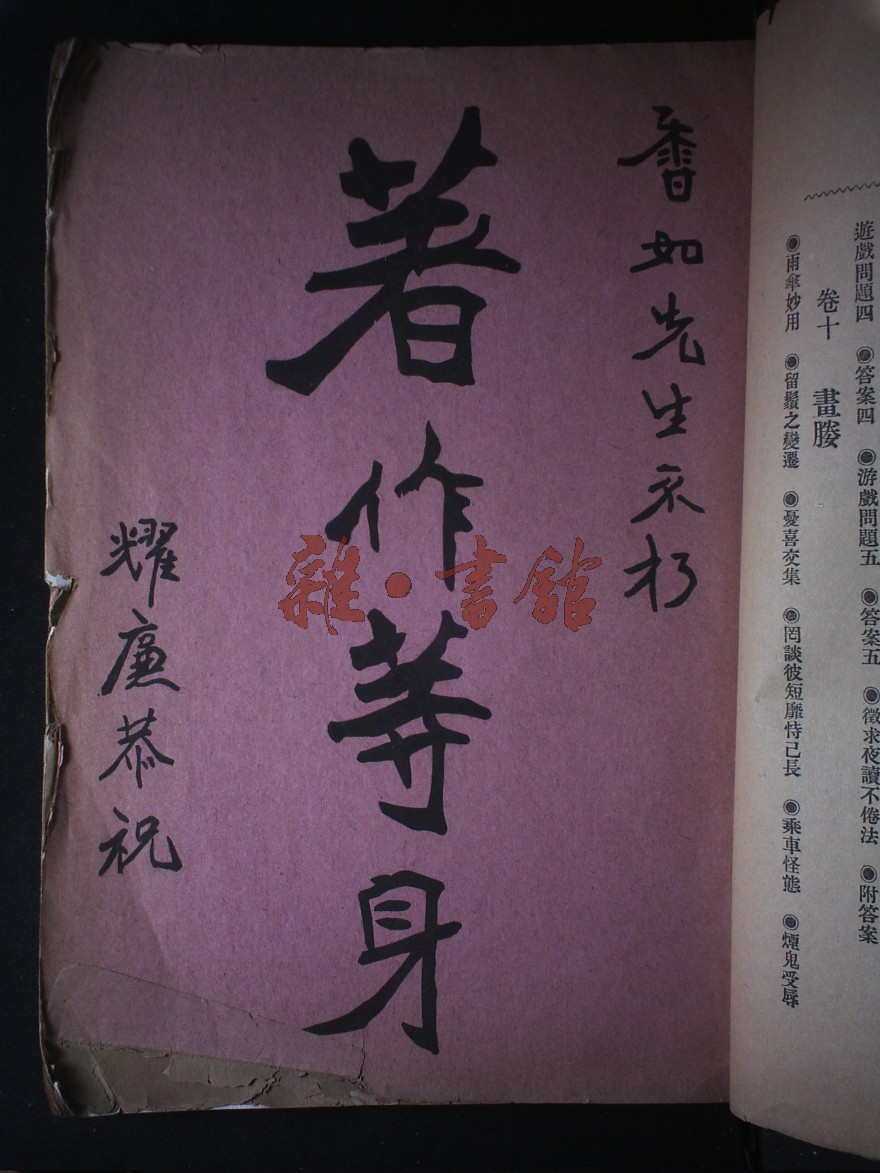 遊戲問題四 ◉答案四 ◉游戲問題五 ◉答案五 ◉徵求夜讀不倦法 ◉附答案
卷十 畫媵
◉雨傘妙用 ◉留鬚之變遷 ◉憂喜交集 ◉罔談彼短靡恃己長 ◉乘車怪態 ◉煙鬼受辱
香如先生不朽
著作等身
耀廉恭祝
雜·書館